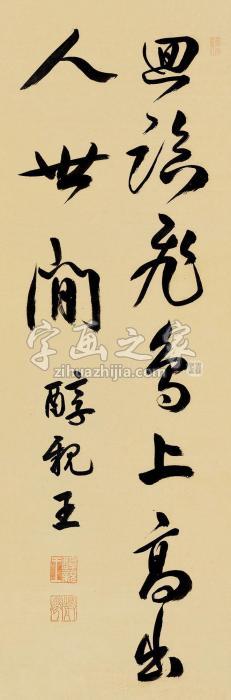 迥临飞鸟上高出
人世间
醇親王
字画之家
zihuazhijia.com